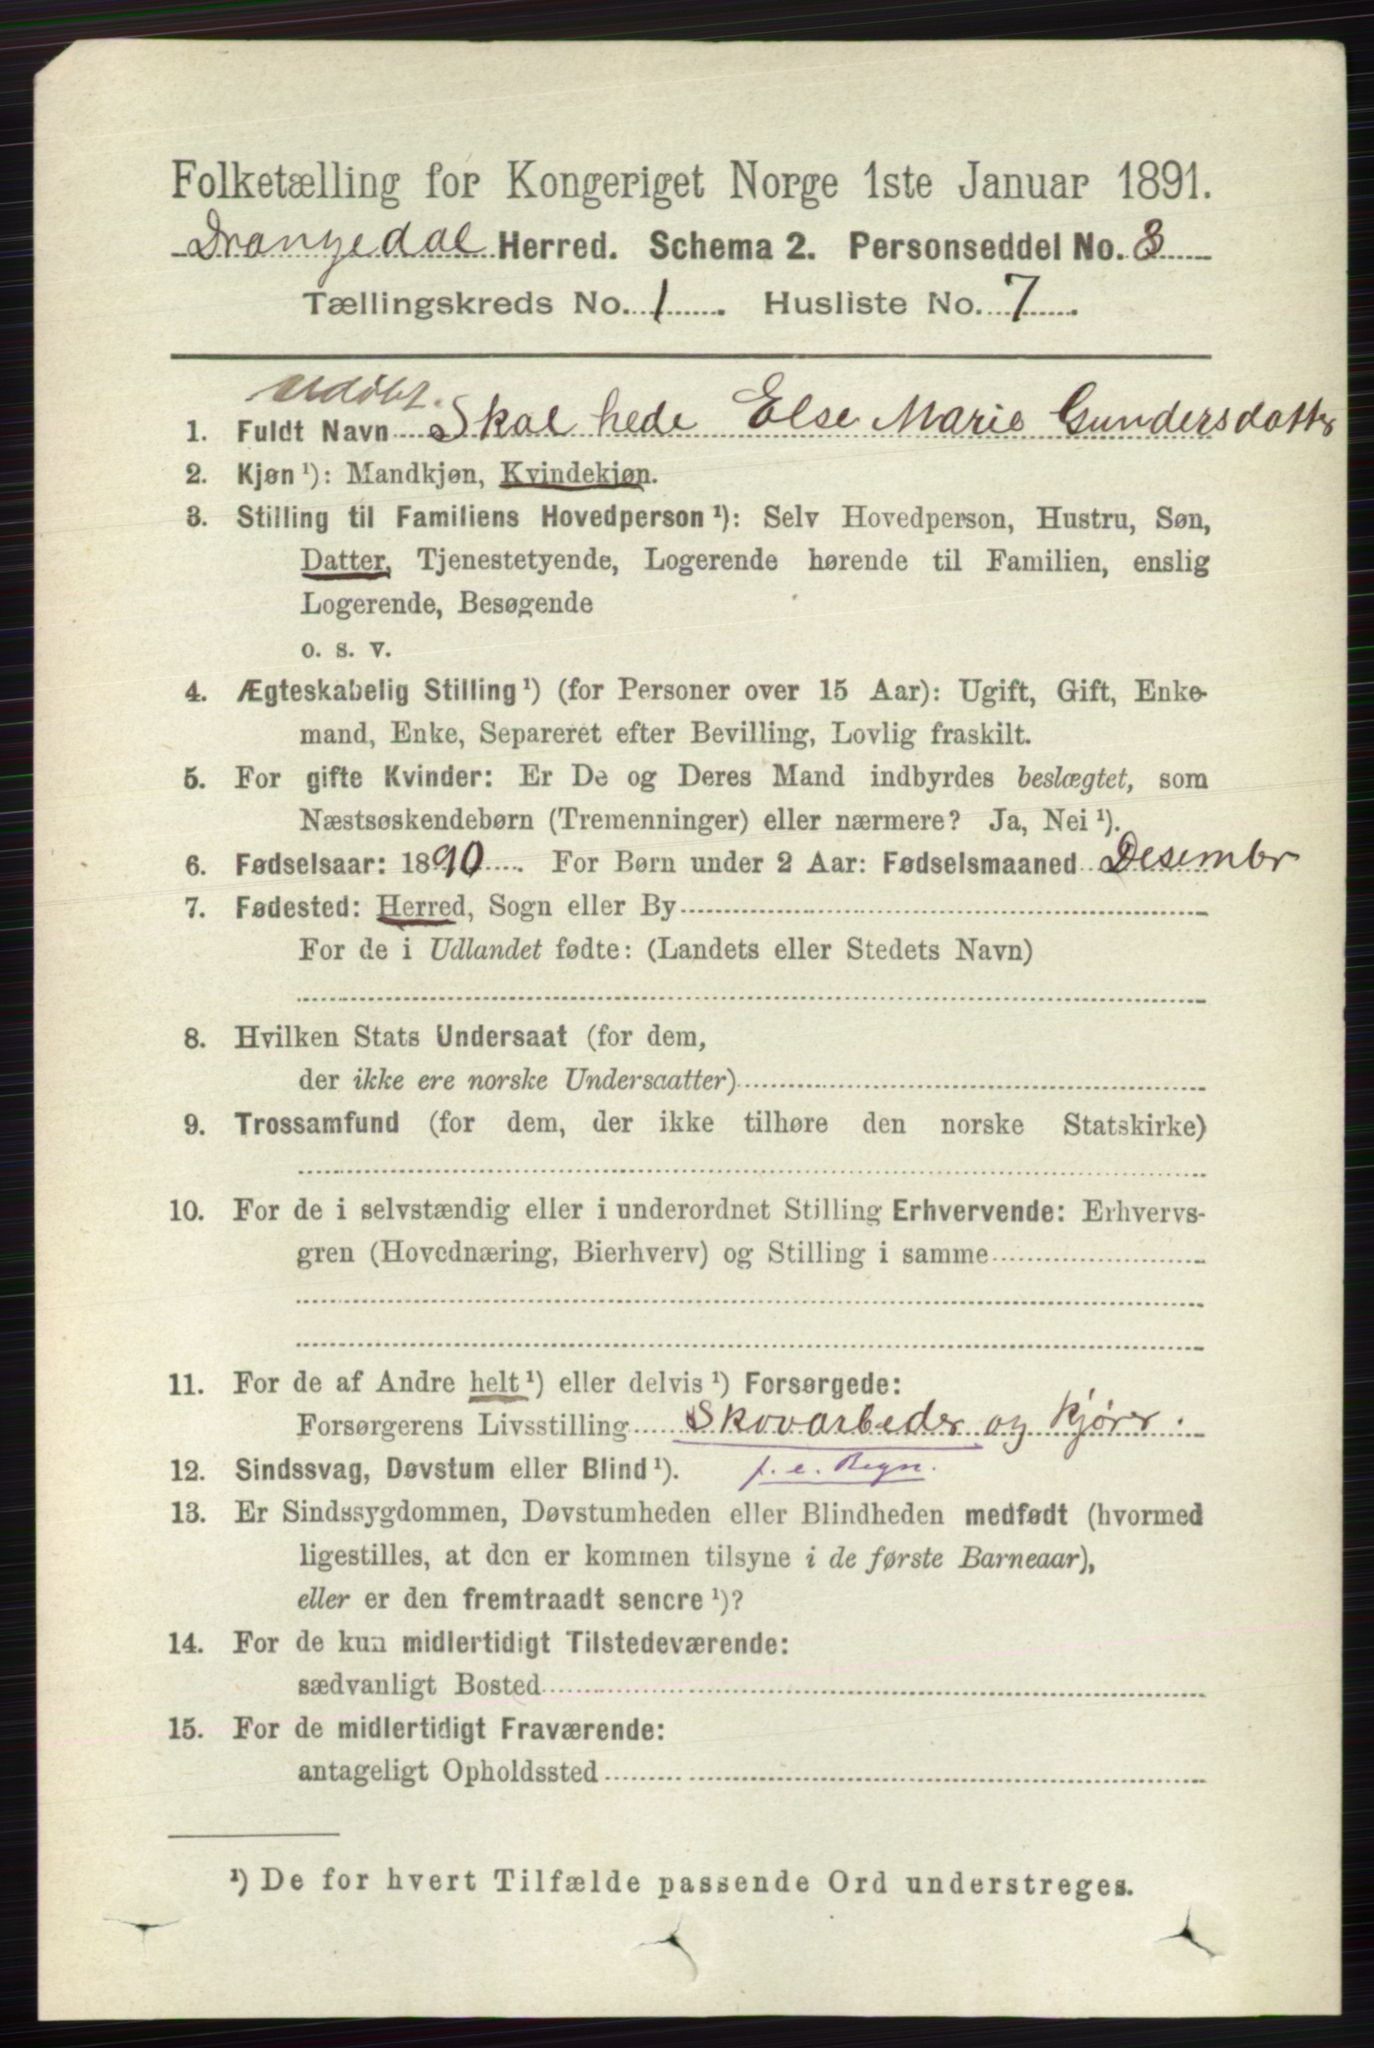 Folketælling for Kongeriget Norge 1ste Januar 1891.
Drangedal Herred. Schema 2. Personseddel No. 8
Tællingskreds No. 1. Husliste No. 7.
udöbt.
1. Fuldt Navn Skal hede Else Marie Gundersdatter
2. Kjøn¹): Mandkjøn, Kvindekjøn.
3. Stilling til Familiens Hovedperson¹): Selv Hovedperson, Hustru, Søn,
Datter, Tjenestetyende, Logerende hørende til Familien, enslig
Logerende, Besøgende
o. s. v.
4. Ægteskabelig Stilling¹) (for Personer over 15 Aar): Ugift, Gift, Enke-
mand, Enke, Separeret efter Bevilling, Lovlig fraskilt.
5. For gifte Kvinder: Er De og Deres Mand indbyrdes beslægtet, som
Næstsøskendebørn (Tremenninger) eller nærmere? Ja, Nei¹).
6. Fødselsaar: 1890. For Børn under 2 Aar: Fødselsmaaned Desembr
7. Fødested: Herred, Sogn eller By
For de i Udlandet fødte: (Landets eller Stedets Navn)
8. Hvilken Stats Undersaat (for dem,
der ikke ere norske Undersaatter)
9. Trossamfund (for dem, der ikke tilhøre den norske Statskirke)
10. For de i selvstændig eller i underordnet Stilling Erhvervende: Erhvervs-
gren (Hovednæring, Bierhverv) og Stilling i samme
11. For de af Andre helt¹) eller delvis¹) Forsørgede:
Forsørgerens Livsstilling Skovarbeder og kjører.
12. Sindssvag, Døvstum eller Blind¹). f. e. Regn.
13. Er Sindssygdommen, Døvstumheden eller Blindheden medfødt (hvormed
ligestilles, at den er kommen tilsyne i de første Barneaar),
eller er den fremtraadt senere¹)?
14. For de kun midlertidigt Tilstedeværende:
sædvanligt Bosted
15. For de midlertidigt Fraværende:
antageligt Opholdssted
¹) De for hvert Tilfælde passende Ord understreges.